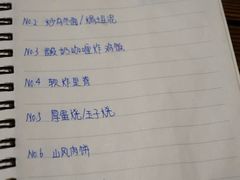 No.2 炒乌冬面/
No.3 酸奶咖喱炸鸡饭
No.4 软炸里脊
No.5 厚蛋烧/玉子烧
No.6 山风肉饼